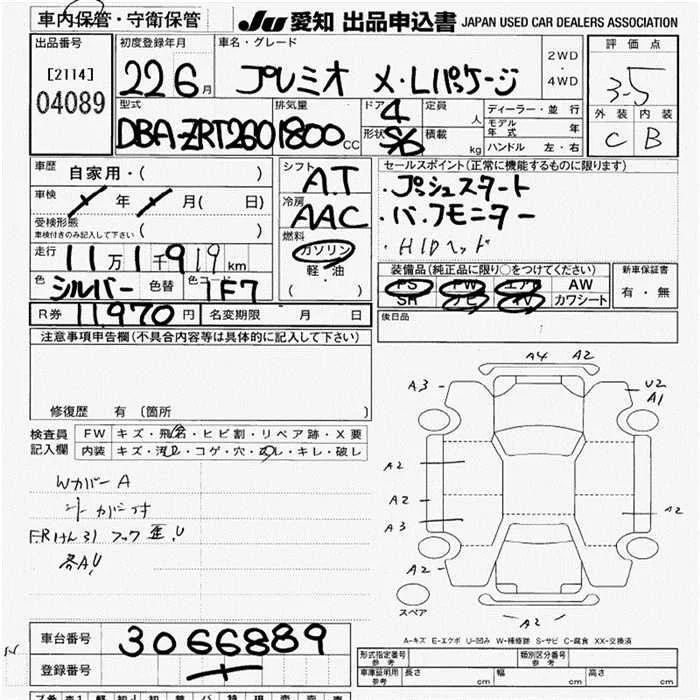 車内保管・守衛保管
JU 愛知 出品申込書 JAPAN USED CAR DEALERS ASSOCIATION
出品番号
[2114]
04089
初度登録年月
22 6月
車名・グレード
プレミオ X・Lパッケージ
2WD
・
4WD
評価点
3.5
外装 内装
C B
型式
DBA-ZRT260
排気量
1800cc
ドア 4
形状 S/6
定員 人
積載 kg
ディーラー・並行
モデル年式 年
ハンドル 左・右
車歴 自家用・( )
車検 年 月( 日)
受検形態
車検付きのみ記入して下さい ( )
走行 11万1千919km
色 シルバー 色替 色コード 1F7
R券 11970円 名変期限 月 日
シフト
A.T
冷房
AAC
燃料
ガソリン
軽・油
( )
セールスポイント(正常に機能するものに限ります)
・プッシュスタート
・バックモニター
・HIDヘッド
装備品(純正品に限り○をつけてください)
PS PW エアB AW
SR ナビ TV カワシート
新車保証書
有・無
後日品
注意事項申告欄(不具合内容等は具体的に記入して下さい)
修復歴 有 〔箇所 〕
検査員記入欄
FW キズ・飛石・ヒビ割・リペア跡・X要
内装 キズ・汚レ・コゲ・穴・スレ・キレ・破レ
WカバーA
フック 歪、U
各A、U
A4 A2
A3
U2
A1
A2
A2
A3
A2
A2
A2
スペア
A-キズ E-エクボ U-凹み W-補修跡 S-サビ C-腐食 XX-交換済
車台番号 3066889
登録番号
形式指定番号 参考
類別区分番号 参考
車庫証明用 参考 長さ cm 幅 cm 高さ cm